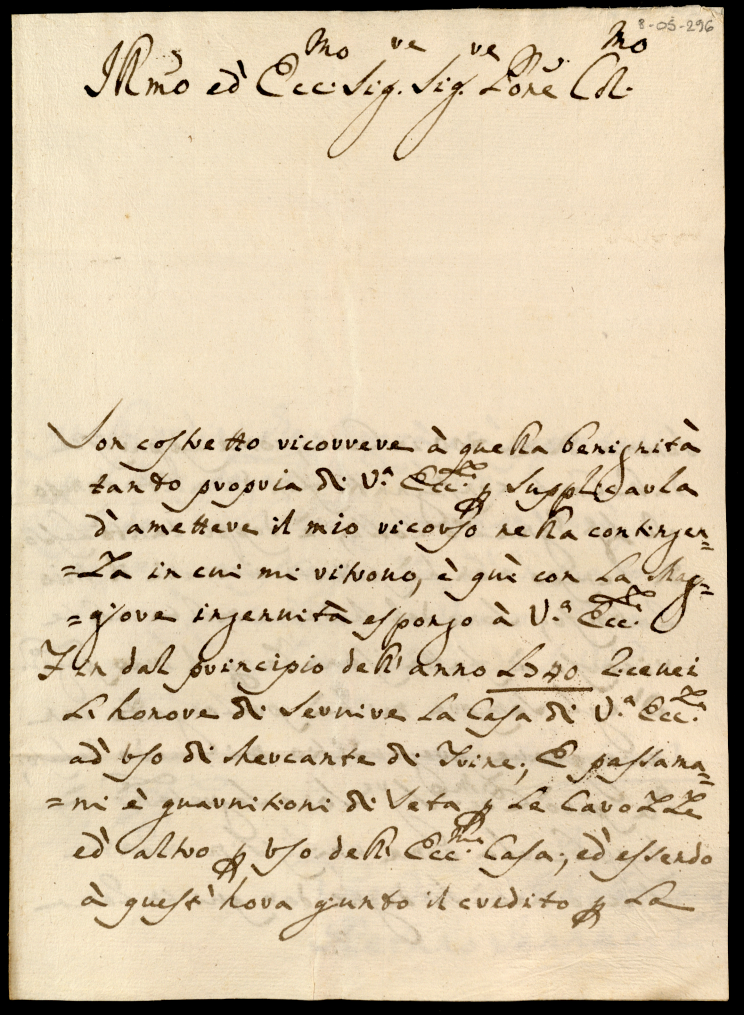 8-05-296
Illmo ed Eccmo Sigre Sigre Pone Colmo
Son costretto ricorrere à quella benignità
tanto propria di V.a Ecc.za p supplicarla
d'amettere il mio ricorso nella contingen=
=za in cui mi ritrouo, è què con la Mag=
=giore ingenuità espongo à V.a Ecc.za
Fin dal principio dell'anno 1740 Riceuei
L'honore di Seruire La Casa di V.a Ecc.za
ad uso di Mercante di Trine; E passama=
=ni è guarnitioni di Seta p Le CaroZZe
ed altro p uso dell' Ecc.ma Casa; ed essendo
à quest'hora giunto il credito p La